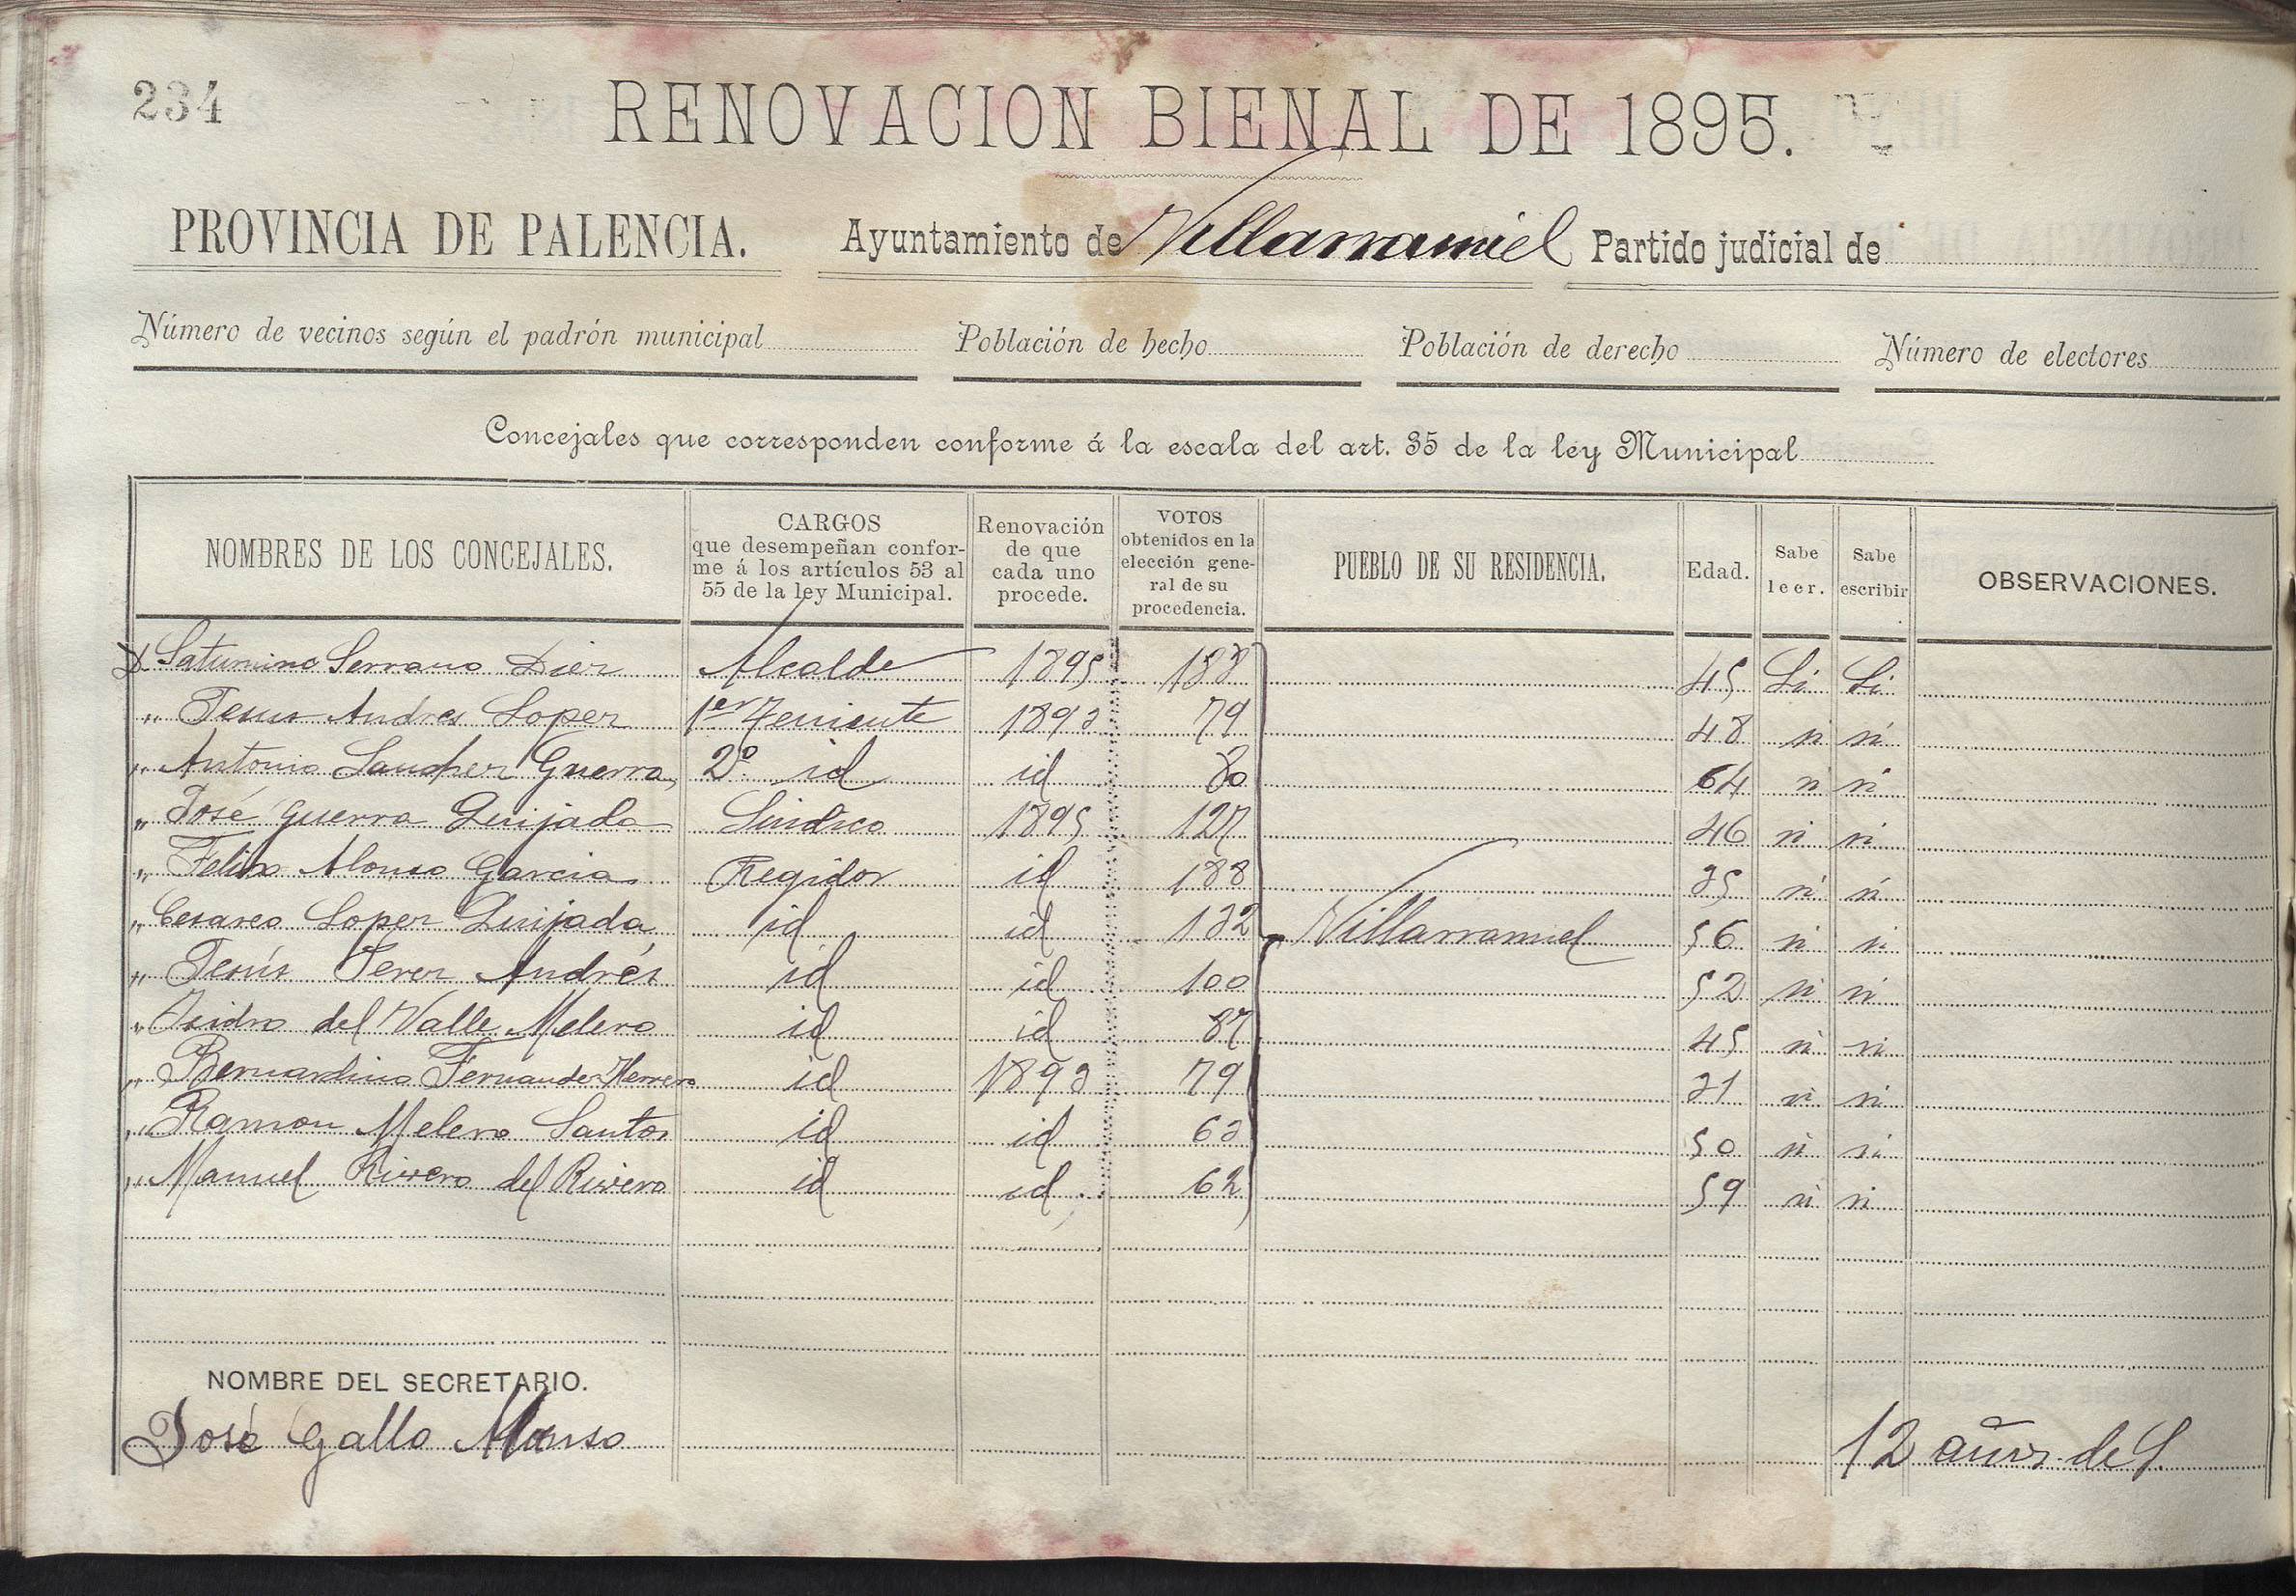 234
RENOVACION BIENAL DE 1895.
PROVINCIA DE PALENCIA. Ayuntamiento de Villarramiel Partido judicial de
Número de vecinos según el padrón municipal Población de hecho Población de derecho Número de electores
Concejales que corresponden conforme á la escala del art. 35 de la ley Municipal
NOMBRES DE LOS CONCEJALES. CARGOS que desempeñan conforme á los artículos 53 al 55 de la ley Municipal. Renovación de que cada uno procede. VOTOS obtenidos en la elección general de su procedencia. PUEBLO DE SU RESIDENCIA. Edad. Sabe leer. Sabe escribir OBSERVACIONES.
D. Saturnino Serrano Diez Alcalde 1895 45 Si Si
" Jesus Andres Lopez 1er Teniente 1893 79 48 " "
" Antonio Sanchez Guerra 2º id id 80 64 " "
" José Guerra Quijada Sindico 1895 127 46 " "
" Felix Alonso Garcia Regidor id 188 35 " "
" Cesareo Lopez Quijada id id 132 Villarramiel 56 " "
" Jesús Perez Andrés id id 100 52 " "
" Isidro del Valle Melero id id 87 45 " "
" Bernardino Fernandez Herrero id 1893 79 31 " "
" Ramon Melero Santos id id 63 50 " "
" Manuel Rivero del Rivero id id 62 59 " "
NOMBRE DEL SECRETARIO.
José Gallo Alonso 12 años de S.